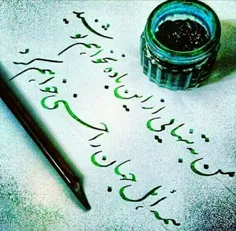 من به تنهایی از این باده نخواهم نوشید
همه اهل جهان را حسنی خواهم کرد